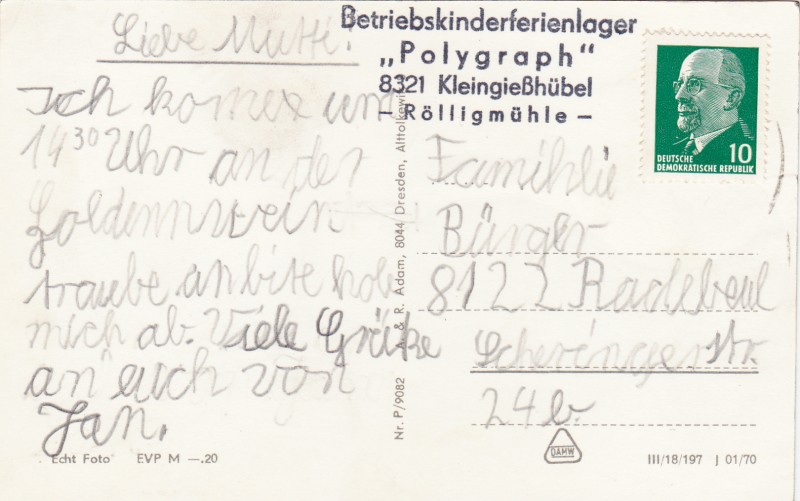 Liebe Mutti!
Ich komme um
14 30 Uhr an der
Goldennwein
traube an bite hole
mich ab. Viele Grüße
an euch von
Jan.
Echt Foto EVP M —.20
Nr. P/9082 A. & R. Adam, 8044 Dresden,
Betriebskinderferienlager
„Polygraph"
8321 Kleingießhübel
– Rölligmühle –
10
DEUTSCHE
DEMOKRATISCHE REPUBLIK
Familie
Bürger
8122 Radebeul
Str.
24b.
DAMW
III/18/197 J 01/70